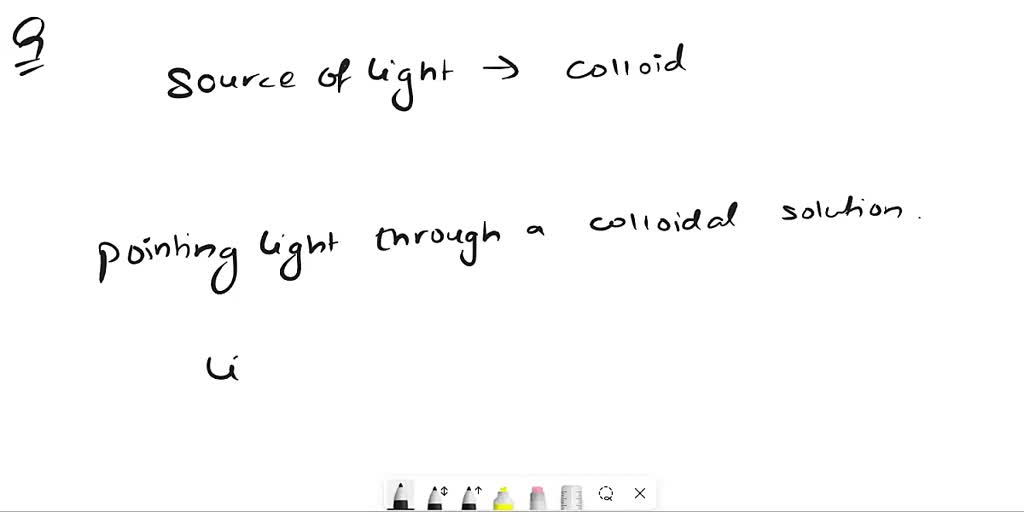 Q
Source of light → colloid
pointing light through a colloidal solution.
Li